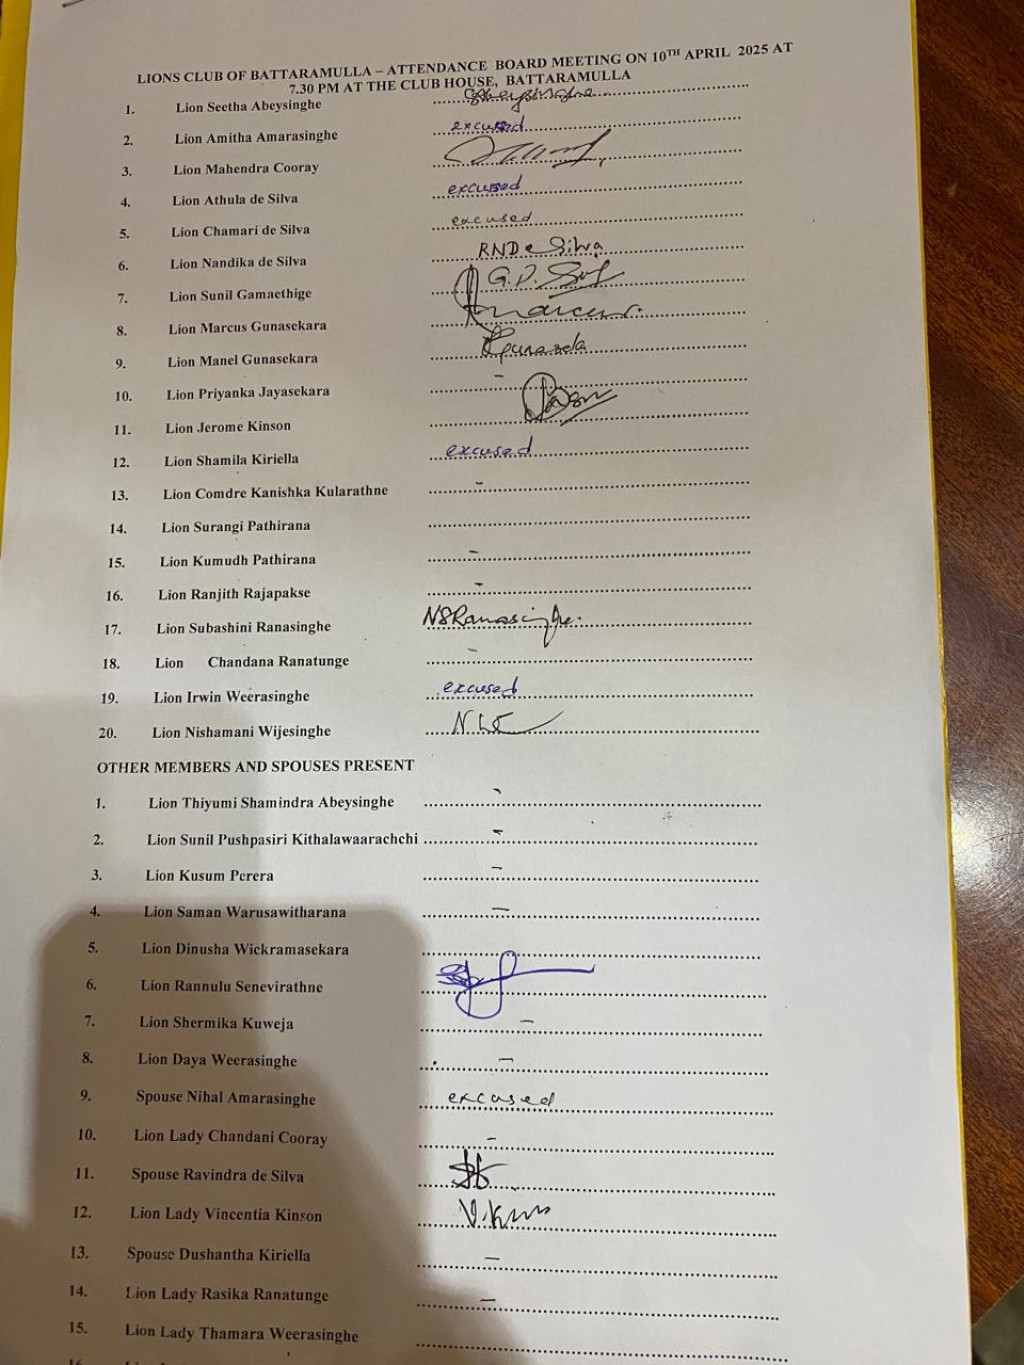 LIONS CLUB OF BATTARAMULLA – ATTENDANCE BOARD MEETING ON 10TH APRIL 2025 AT
7.30 PM AT THE CLUB HOUSE, BATTARAMULLA
1. Lion Seetha Abeysinghe
2. Lion Amitha Amarasinghe excused
3. Lion Mahendra Cooray
4. Lion Athula de Silva excussed
5. Lion Chamari de Silva excused
6. Lion Nandika de Silva RNDe Silva
7. Lion Sunil Gamaethige G.P.
8. Lion Marcus Gunasekara Marcus
9. Lion Manel Gunasekara
10. Lion Priyanka Jayasekara –
11. Lion Jerome Kinson
12. Lion Shamila Kiriella excused
13. Lion Comdre Kanishka Kularathne –
14. Lion Surangi Pathirana
15. Lion Kumudh Pathirana –
16. Lion Ranjith Rajapakse –
17. Lion Subashini Ranasinghe NSRanasinghe.
18. Lion Chandana Ranatunge –
19. Lion Irwin Weerasinghe excused
20. Lion Nishamani Wijesinghe
OTHER MEMBERS AND SPOUSES PRESENT
1. Lion Thiyumi Shamindra Abeysinghe –
2. Lion Sunil Pushpasiri Kithalawaarachchi –
3. Lion Kusum Perera –
4. Lion Saman Warusawitharana –
5. Lion Dinusha Wickramasekara
6. Lion Rannulu Senevirathne
7. Lion Shermika Kuweja –
8. Lion Daya Weerasinghe –
9. Spouse Nihal Amarasinghe excused
10. Lion Lady Chandani Cooray –
11. Spouse Ravindra de Silva
12. Lion Lady Vincentia Kinson
13. Spouse Dushantha Kiriella –
14. Lion Lady Rasika Ranatunge –
15. Lion Lady Thamara Weerasinghe